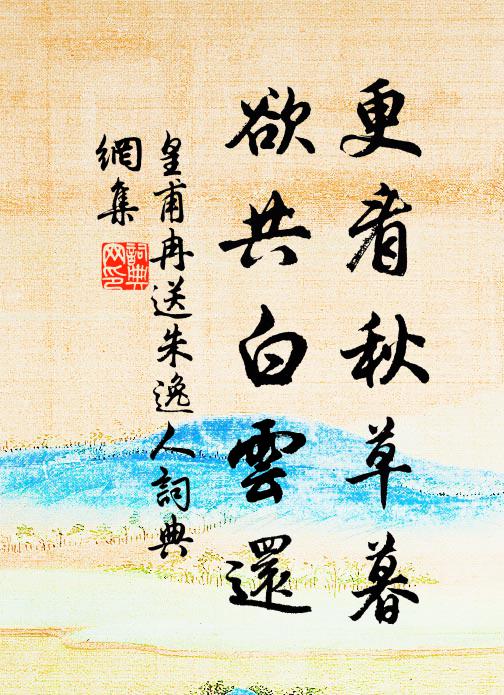 更看秋草暮
欲共白雲還
皇甫冉送朱逸人詞典
網集
詞典
网印